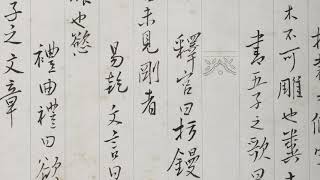 木不可雕也糞土
書五子之歌曰
釋宮曰杇鏝
未見剛者
易乾文言曰
也慾
禮曲禮曰欲
子之文章